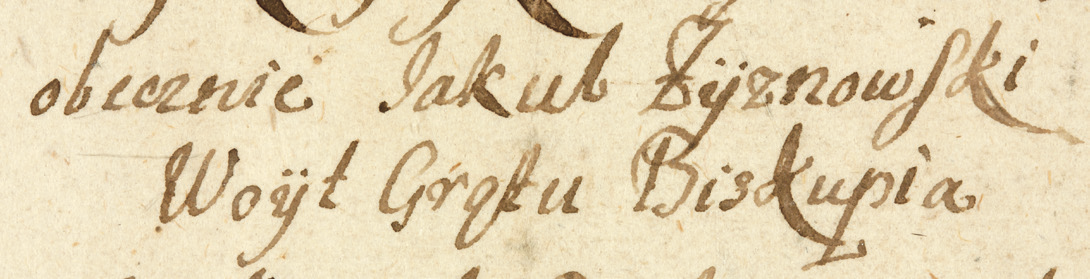 obecznie Jakub Żÿznowſki
Woÿt Grątu Biskupia